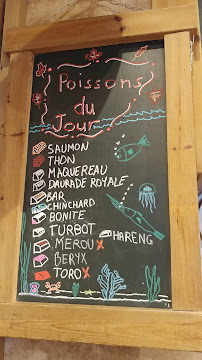 Poissons
du
Jour
SAUMON
THON
MAQUEREAU
DAURADE ROYALE
BAR
CHINCHARD
BONITE
TURBOT
HARENG
MEROU X
BERYX
TORO X